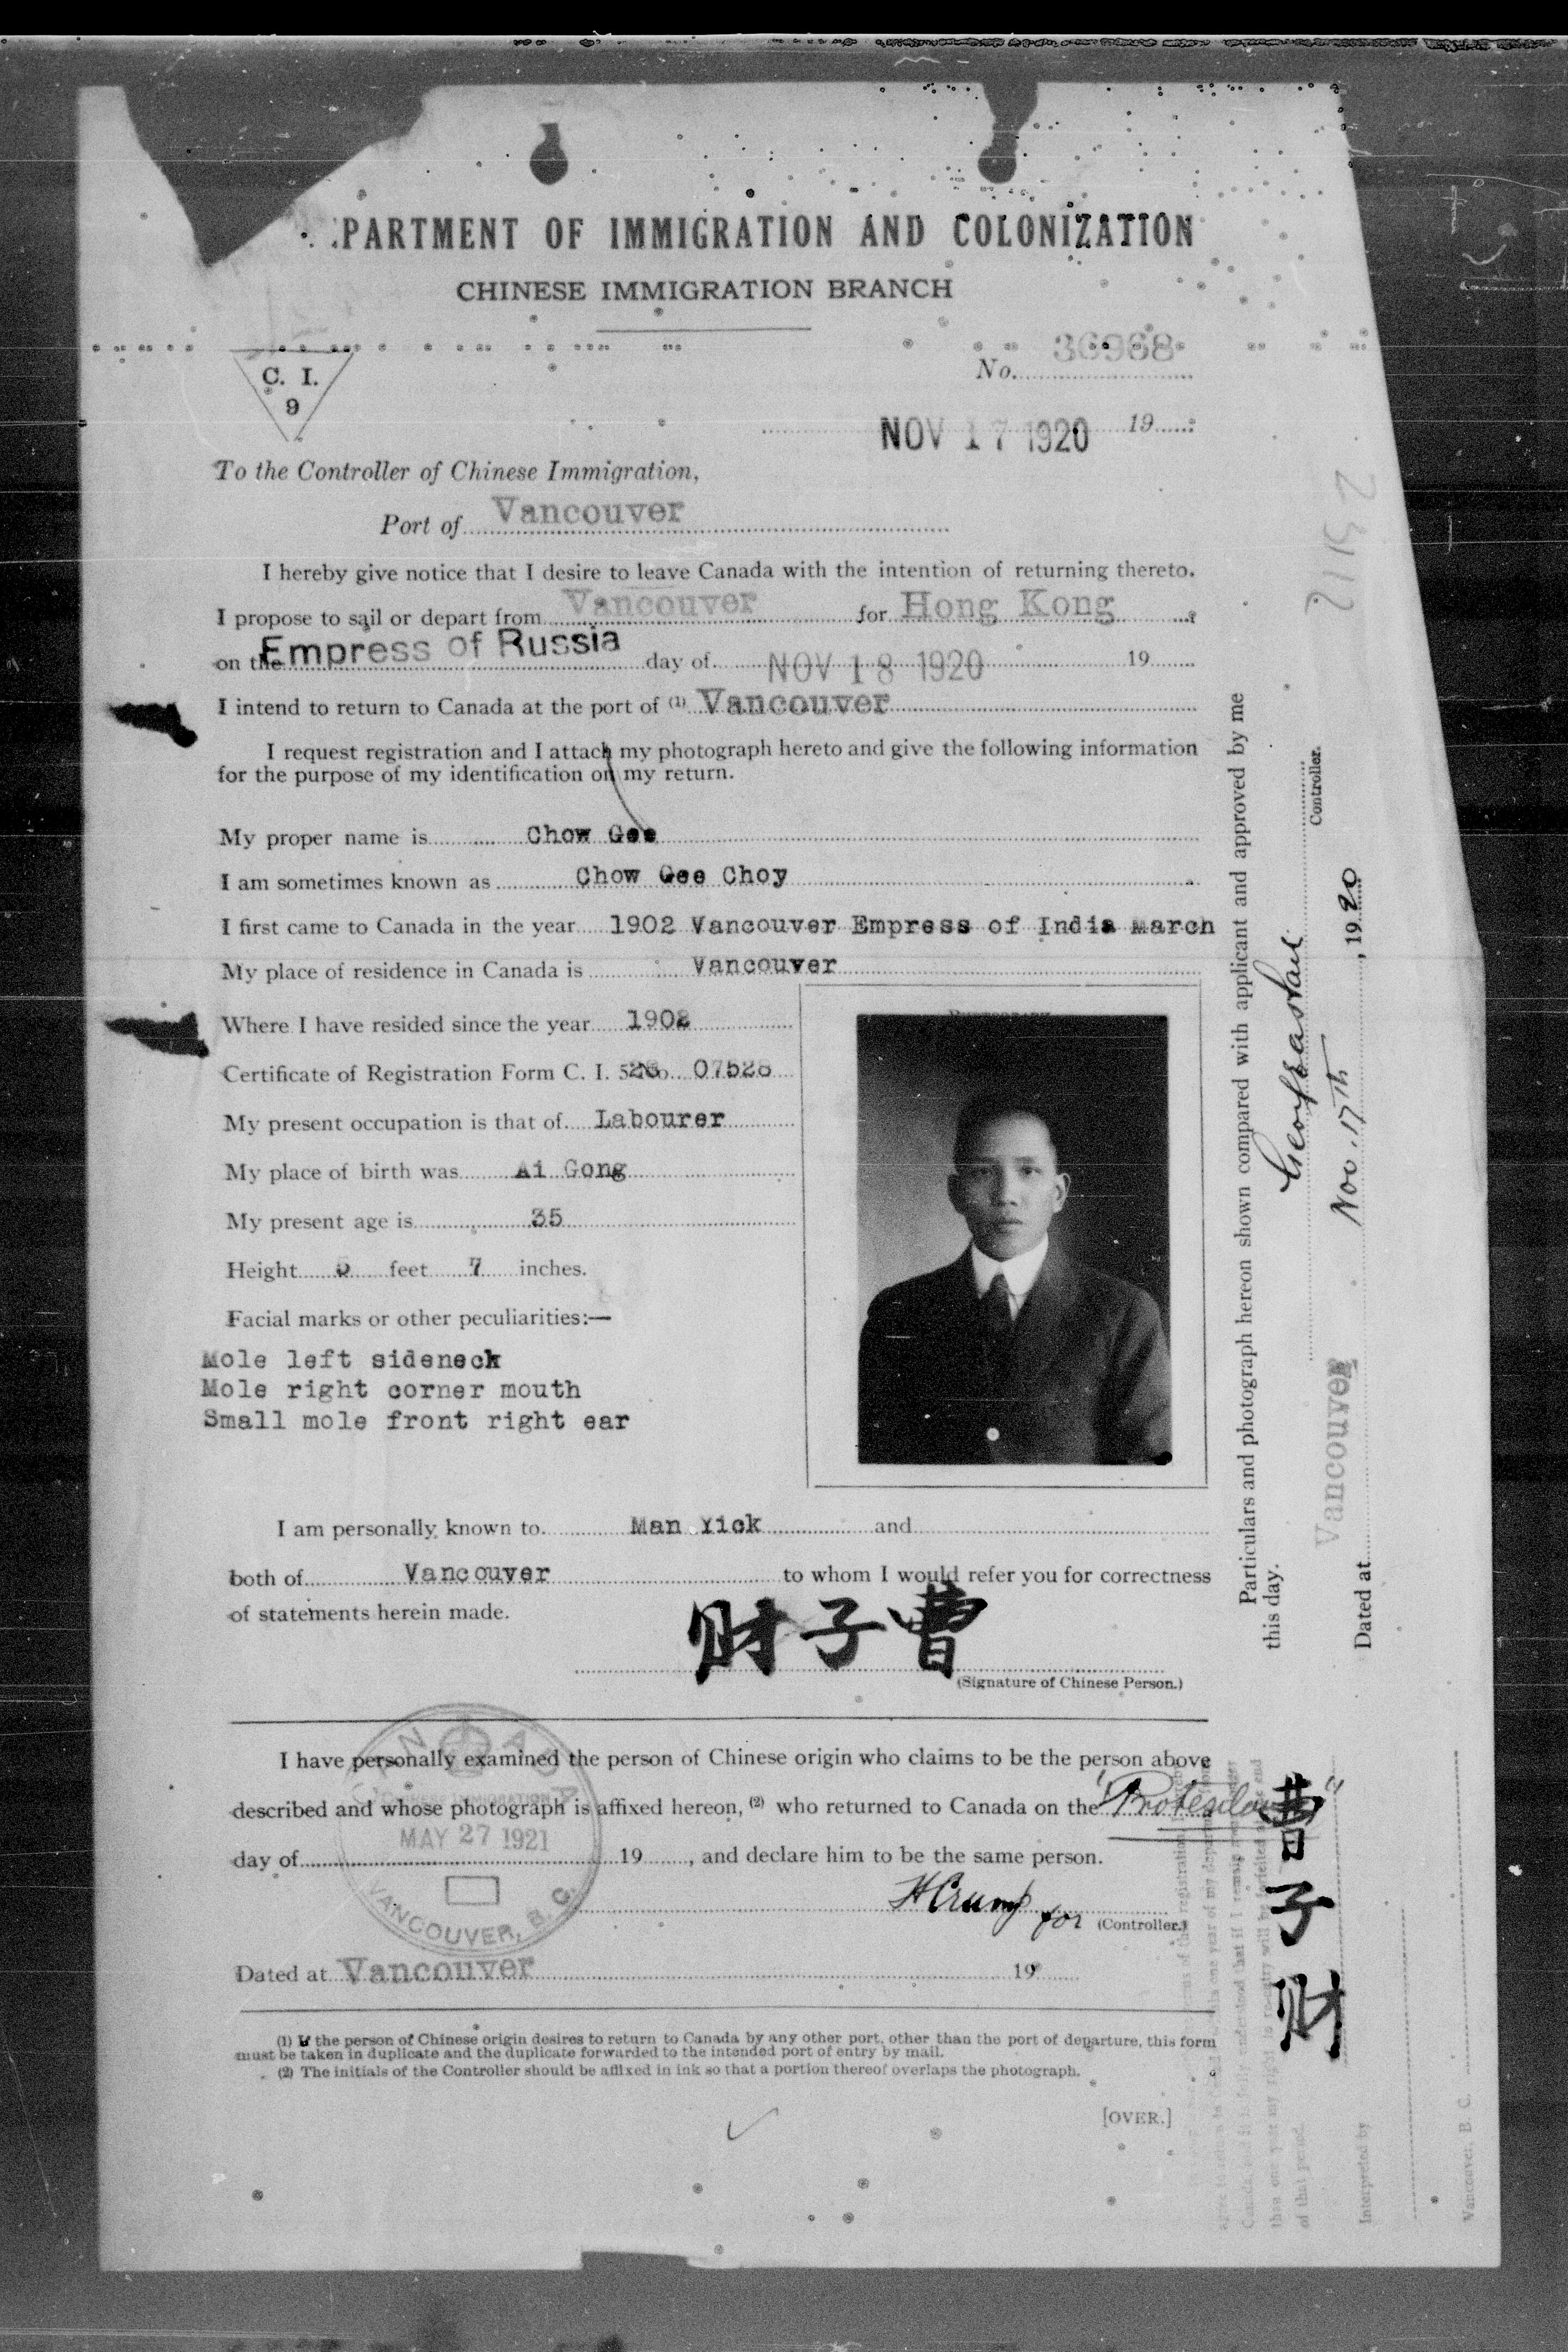 PARTMENT OF IMMIGRATION AND COLONIZATION
CHINESE IMMIGRATION BRANCH
C. I.
9
No. 36968
NOV 17 1920 19
To the Controller of Chinese Immigration,
Port of Vancouver
I hereby give notice that I desire to leave Canada with the intention of returning thereto.
I propose to sail or depart from Vancouver for Hong Kong
on the Empress of Russia day of NOV 18 1920 19
I intend to return to Canada at the port of (1) Vancouver
I request registration and I attach my photograph hereto and give the following information
for the purpose of my identification on my return.
My proper name is Chow Gee
I am sometimes known as Chow Gee Choy
I first came to Canada in the year 1902 Vancouver Empress of India March
My place of residence in Canada is Vancouver
Where I have resided since the year 1902
Certificate of Registration Form C. I. 5 No. 07528
My present occupation is that of Labourer
My place of birth was Ai Gong
My present age is 35
Height 5 feet 7 inches.
Facial marks or other peculiarities:—
Mole left sideneck
Mole right corner mouth
Small mole front right ear
I am personally known to Man Yick and
both of Vancouver to whom I would refer you for correctness
of statements herein made.
财子曹
(Signature of Chinese Person.)
I have personally examined the person of Chinese origin who claims to be the person above
described and whose photograph is affixed hereon, (2) who returned to Canada on the "Protesilaus"
day of 19, and declare him to be the same person.
CANADA
CHINESE IMMIGRATION
MAY 27 1921
VANCOUVER, B. C.
H Crump for (Controller.)
Dated at Vancouver 19
(1) If the person of Chinese origin desires to return to Canada by any other port, other than the port of departure, this form
must be taken in duplicate and the duplicate forwarded to the intended port of entry by mail.
(2) The initials of the Controller should be affixed in ink so that a portion thereof overlaps the photograph.
[OVER.]
Particulars and photograph hereon shown compared with applicant and approved by me
this day.
Controller.
Dated at Vancouver Nov. 17th, 1920
曹子财
Interpreted by
Vancouver, B. C.